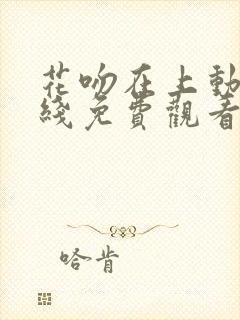 花吻在上動
綫免費觀看
哈肯